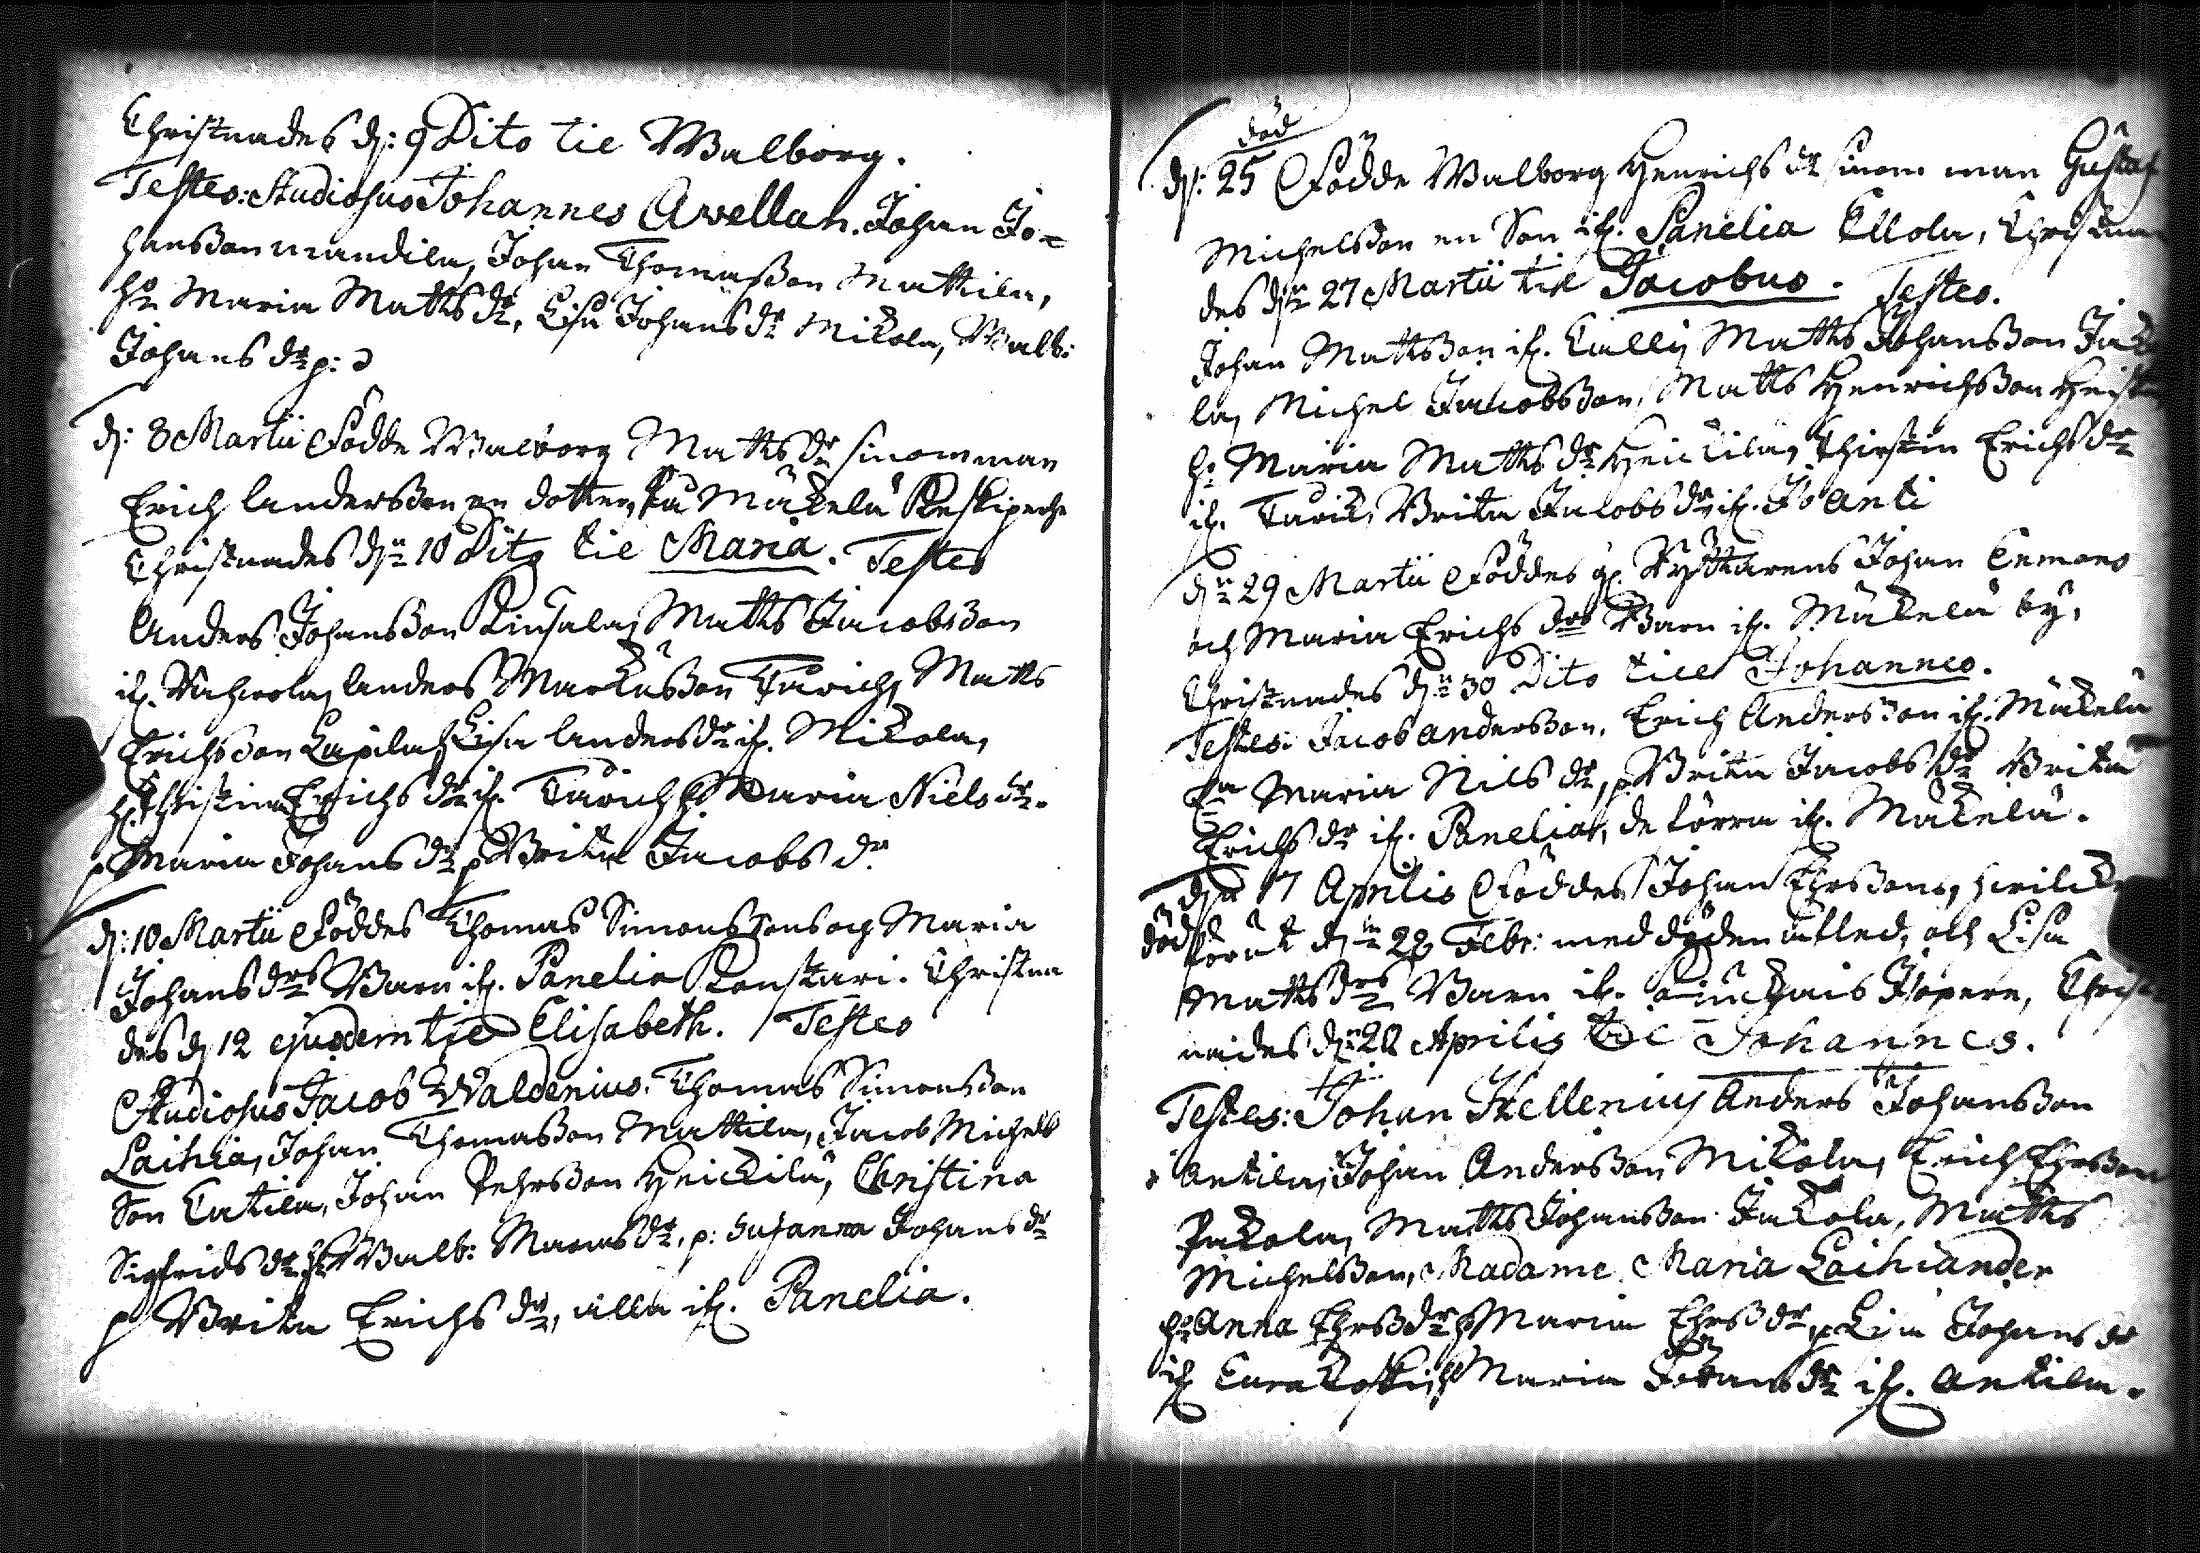 Christnades d: 9 Dito til Walborg.
Testes: Studiosus Johannes Avellan. Johan Jo=
hansson Mandila, Johan Thomasson Mattila,
hu Maria Matts dr, Lisa Johans dr Mikola, Walb:
Johans dr p:
d: 8 Martii Födde Walborg Matts dr sinom man
Erich Andersson en dotter, på Mäkelä
Christnades dn 10 Dito til Maria. Testes
Anders Johansson Matts Jacobsson
if. Anders Markusson Matts
Erichsson Lapila, Lisa Anders dr if. Mikola,
h. Christina Erichs dr if. Maria Niels dr.
p Maria Johans dr p Brita Jacobs dr
d: 10 Martii Föddes Thomas Simonssons och Maria
Johans drs Barn if. Panelia Konstari. Christna
des d 12 ejusdem til Elisabeth. Testes
Studiosus Jacob Waldenius. Thomas Simonsson
Laihia, Johan Thomasson Mattila, Jacob Michels
Son Johan Pehrsson Heickilä, Christina
Sigfrids dr hu Walb: dr, p: Susanna Johans dr
p Brita Erichs dr, alla if. Panelia.
död
d: 25 Födde Walborg Henrichs dr sinom man Gustaf
Michelsson en Son if. Panelia Ellola, Christna
des dn 27 Martii til Jacobus. Testes.
Johan Mattsson if. Matts Johansson Jako
la, Michel Jacobsson, Matts Henrichsson
h: Maria Matts dr Heickilä, Christin Erichs dr
if. Brita Jacobs dr if. Jo Anti
dn 29 Martii Föddes Ryttarens Johan Enmans
och Maria Erichs drs Barn if. Mäkelä by,
Christnades dn 30 Dito till Johannes.
Testes: Jacob Andersson, Erich Andersson if. Mäkelä
Maria Nils dr, p Brita Jacobs dr Brita
Erichs dr if. Panelia, de förra if. Mäkelä.
dn 17 Aprilis Föddes Johan Ehrssons, hvilcken
död förut dn 22 Febr: med döden afled, och Lisa
Matts drs Barn if. Christ
nades dn 28 Aprilis til Johannes.
Testes: Johan Hellenius Anders Johansson
Antila, Johan Andersson Mikola, Erich Ehrsson
Matts Johansson Jakola, Matts
Michelsson, Madame Maria Laihiander
hu Anna Ehrs dr, h Maria Ehrs dr, p Lisa Johans dr
if Eurakoski, h Maria Johans dr if. Antila.